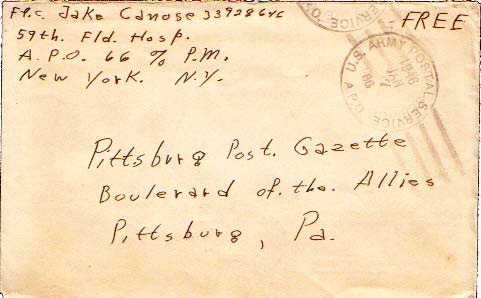 Pfc. Jake Canose 33928646
FREE
59th. Fld. Hosp.
A.P.O. 66 % P.M.
New York. N.Y.
U.S. ARMY POSTAL SERVICE A.P.O.
JAN
7
1946
66
SERVICE
Pittsburg Post. Gazette
Boulevard of. the. Allies
Pittsburg, Pa.